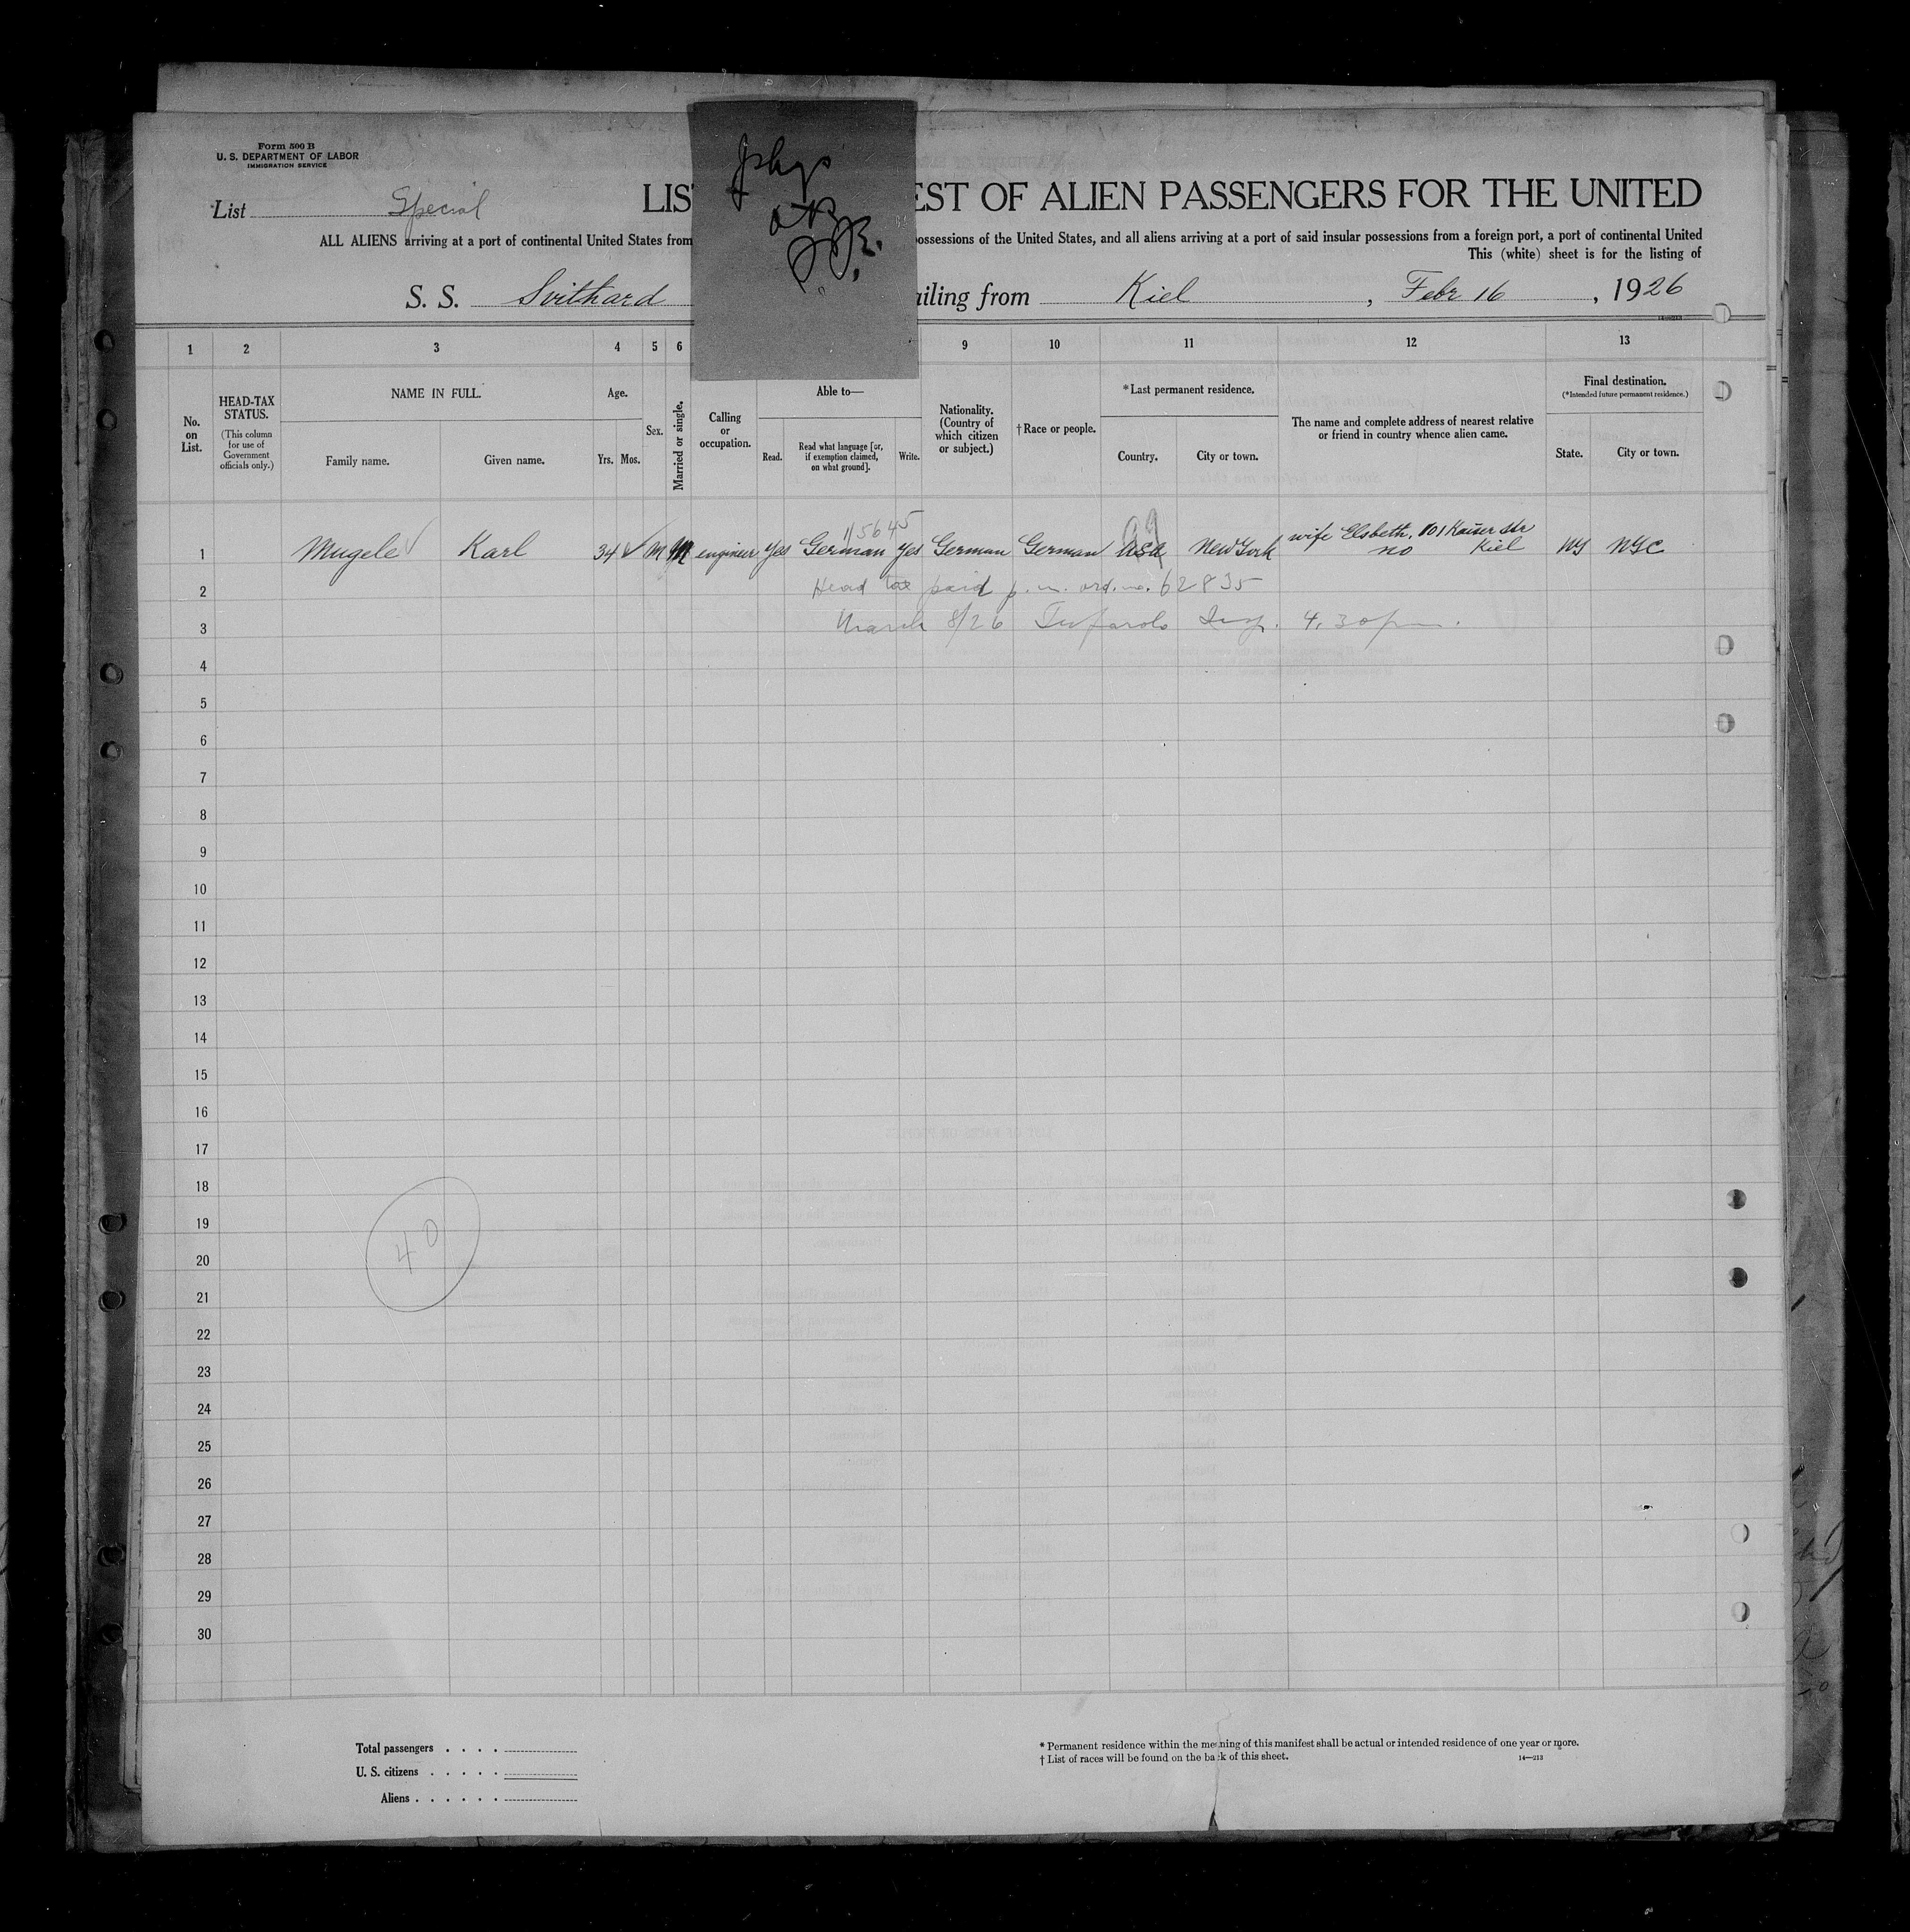 Form 500 B
U. S. DEPARTMENT OF LABOR
IMMIGRATION SERVICE
List Special
LIS EST OF ALIEN PASSENGERS FOR THE UNITED
ALL ALIENS arriving at a port of continental United States from ossessions of the United States, and all aliens arriving at a port of said insular possessions from a foreign port, a port of continental United
This (white) sheet is for the listing of
S. S. Svithard ailing from Kiel , Febr 16 , 1926
1 2 3 4 5 6 9 10 11 12 13
No. on List.
HEAD-TAX STATUS.
(This column for use of Government officials only.)
NAME IN FULL.
Family name. Given name.
Age.
Yrs. Mos.
Sex.
Married or single.
Calling or occupation.
Able to—
Read. Read what language [or, if exemption claimed, on what ground]. Write.
Nationality. (Country of which citizen or subject.)
†Race or people.
*Last permanent residence.
Country. City or town.
The name and complete address of nearest relative or friend in country whence alien came.
Final destination.
(*Intended future permanent residence.)
State. City or town.
1 Mugele Karl 34 M M engineer yes German yes German German USA New York wife Elsbeth, 101 Kaiser str Kiel NY NYC
2 Head tax paid p. m. ord. no. 62835
3 March 8/26 Insp. 4.30 pm.
4
5
6
7
8
9
10
11
12
13
14
15
16
17
18
19
20
21
22
23
24
25
26
27
28
29
30
40
Total passengers . . . .
U. S. citizens . . . . .
Aliens . . . . . .
* Permanent residence within the meaning of this manifest shall be actual or intended residence of one year or more.
† List of races will be found on the back of this sheet.
14—213